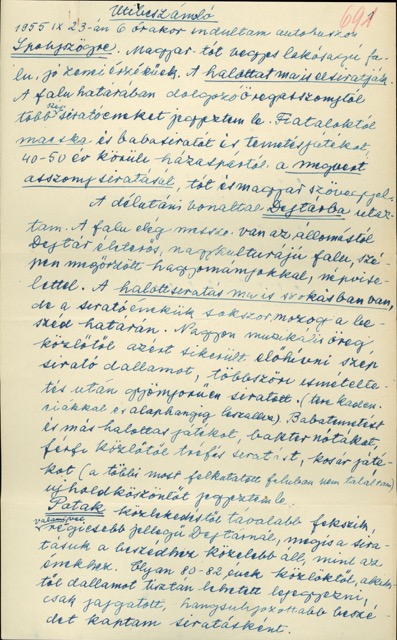 Utibeszámoló
691
1955 IX 23-án 6 órakor indultam autobuszon
Ipolyszögre. Magyar-tót vegyes lakosságú fa-
lu, jó zenei érzékűek. A halottat ma is elsiratják.
A falu határában dolgozó öregasszonytól
több siratóéneket jegyeztem le. Fiataloktól
macska és babasiratót és temetésjátékot,
40-50 év körüli házaspártól a megvert
asszony siratását, tót és magyar szöveggel.
A délutáni vonattal Dejtárba utaz-
tam. A falu elég messze van az állomástól
Dejtár életerős, nagykulturájú falu, szé-
pen megőrzött hagyományokkal, népvise-
lettel. A halottsiratás ma is szokásban van,
de a siratóénekük sokszor mozog a be-
széd határán. Nagyon muzikális öreg
közlőtől azért sikerült előhívni szép
sirató dallamot, többszöri ismételte-
tés után gyönyörűen siratott. (terc kaden-
ciákkal és alaphangig leszállva). Babatemetést
és más halottas játékot, bakter nótákat,
férfi közlőtől tréfás siratást, kosár játé-
kot (a többi most felkutatott faluban nem találtam)
ujholdköszöntőt jegyeztem le.
Patak közlekedéstől távolabb fekszik,
valamivel
régiesebb jellegű Dejtárnál, mégis a sira-
tásuk a beszédhez közelebb áll, mint az
énekhez. Olyan 80-82 évek közlőktől, akik-
től dallamot tisztán lehetett lejegyezni,
csak jajgatott, hangsulyozottabb beszé-
det kaptam siratásként.